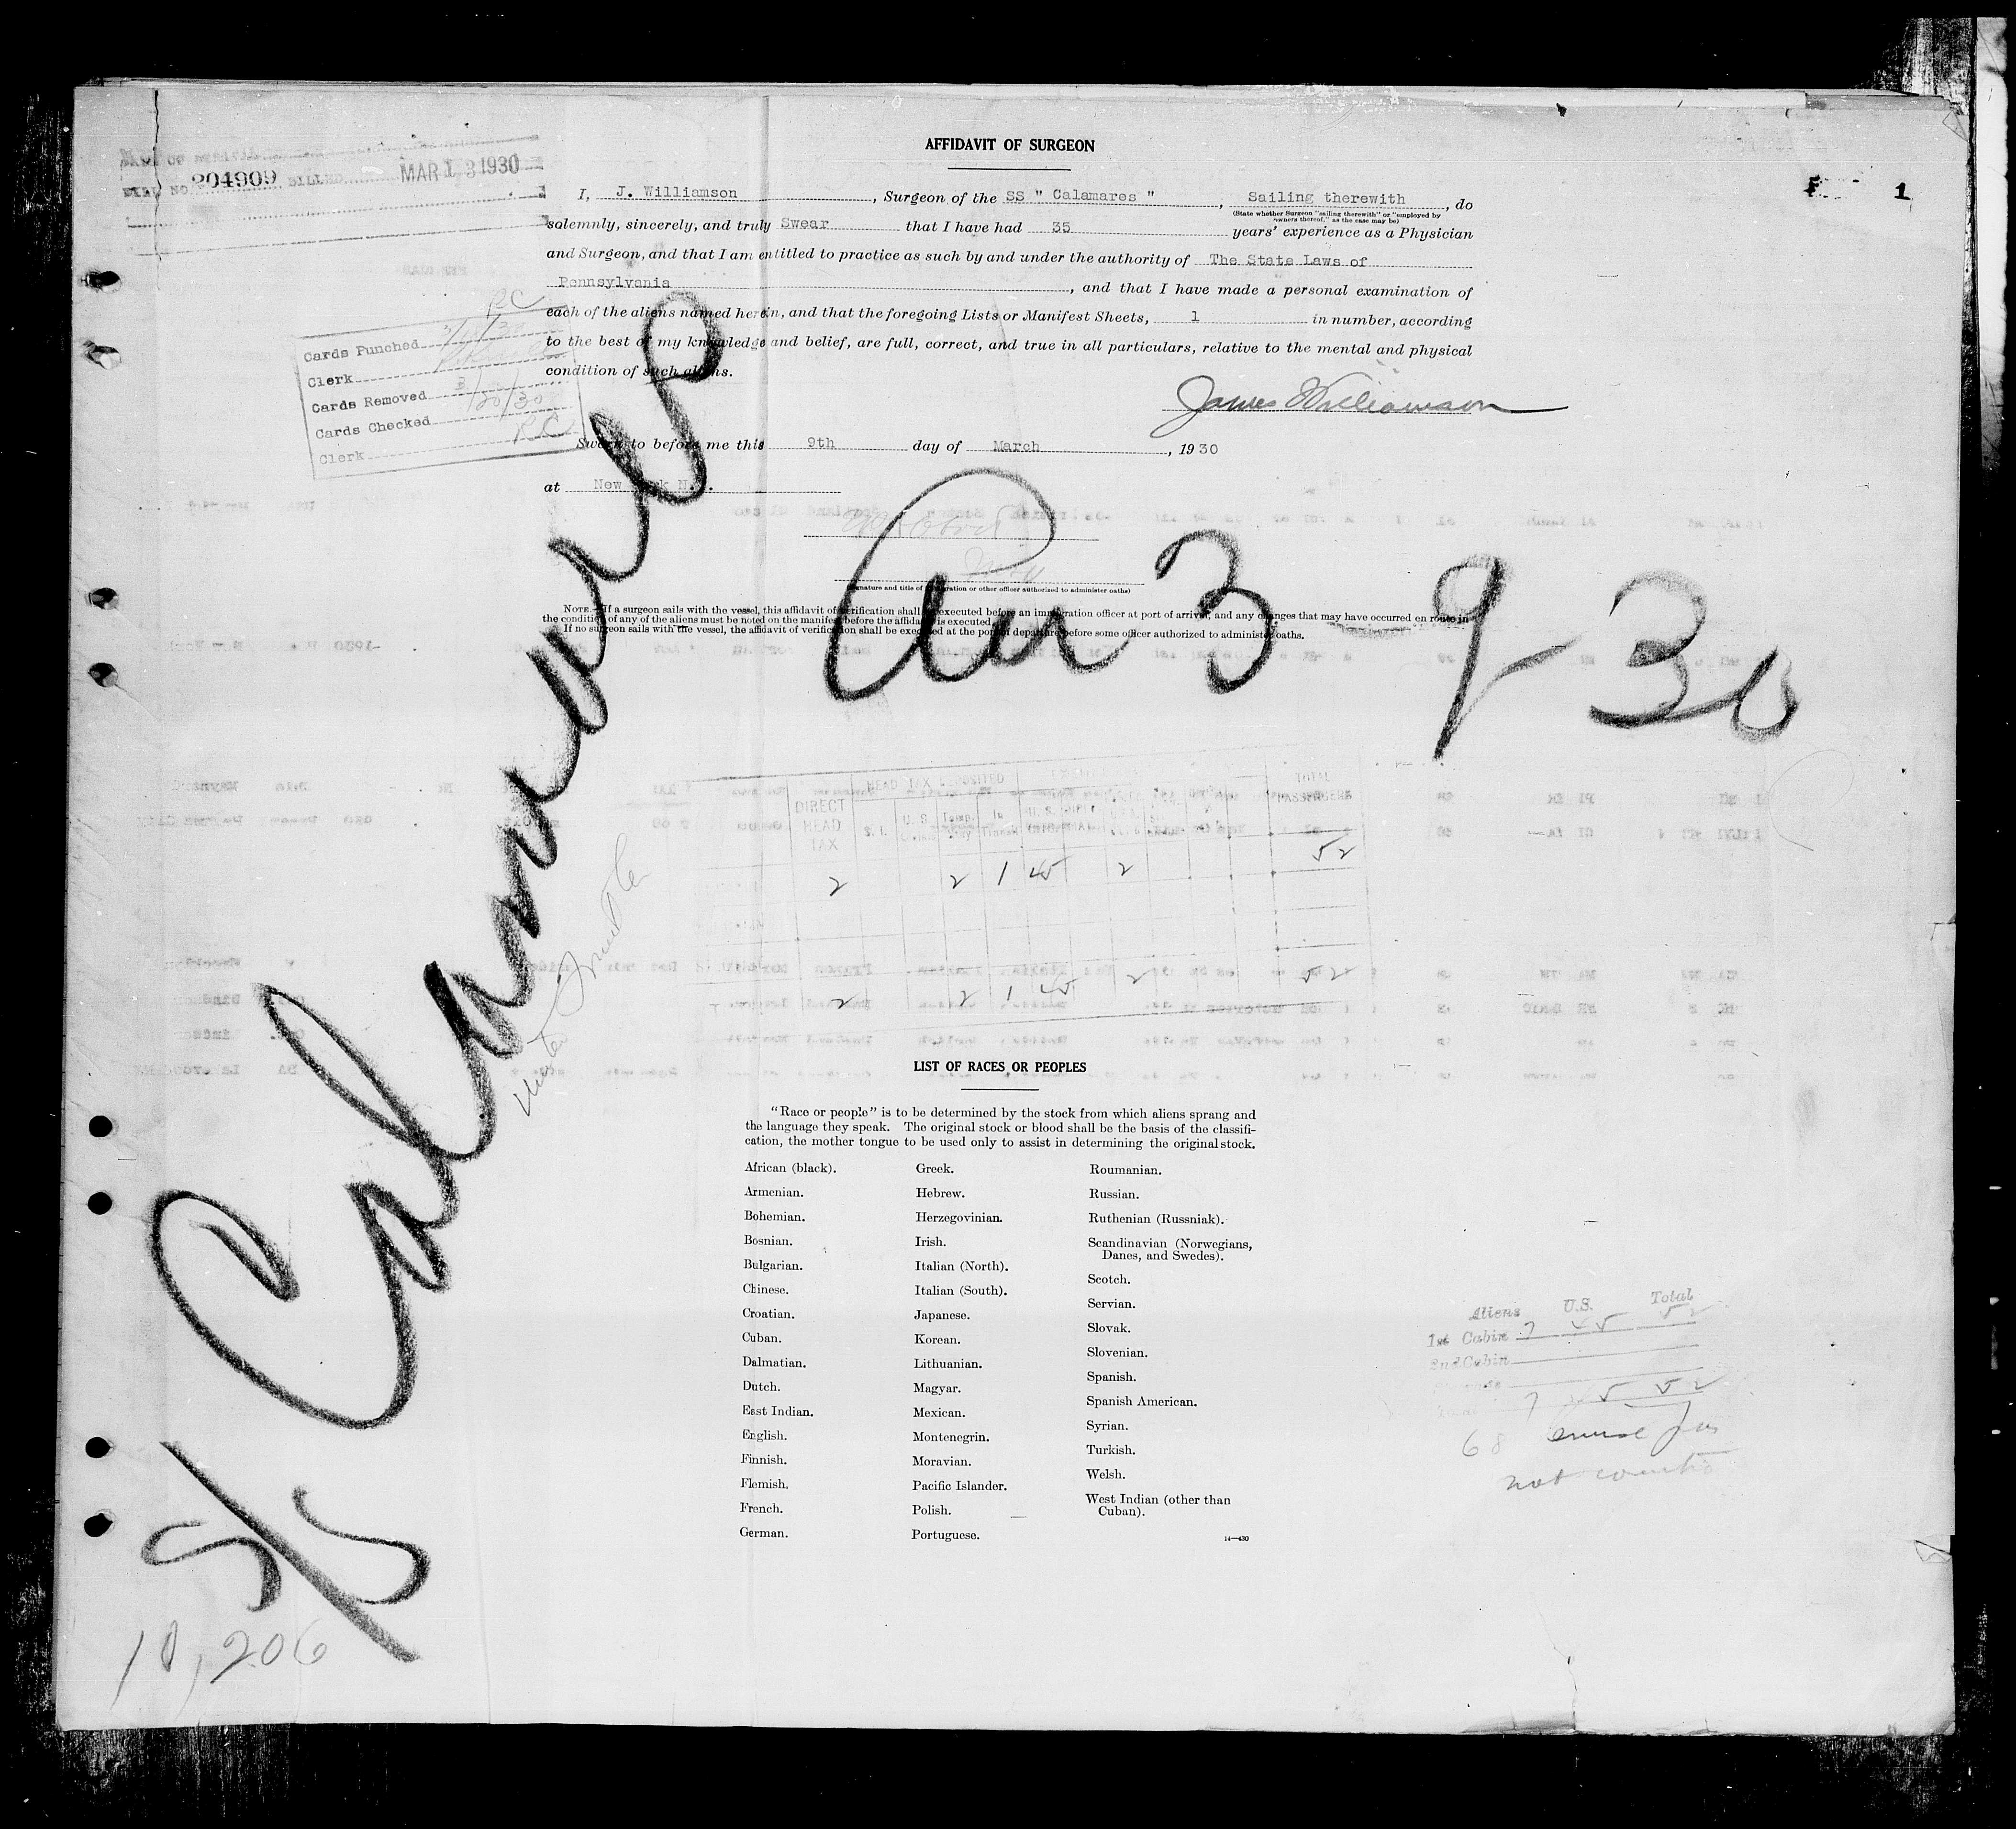 AFFIDAVIT OF SURGEON
BILL NO. 204909 BILLED MAR 13 1930
F 1
I, J. Williamson, Surgeon of the SS " Calamares ", Sailing therewith, do
(State whether Surgeon "sailing therewith" or "employed by
owners thereof," as the case may be)
solemnly, sincerely, and truly Swear that I have had 35 years' experience as a Physician
and Surgeon, and that I am entitled to practice as such by and under the authority of The State Laws of
Pennsylvania, and that I have made a personal examination of
each of the aliens named herein, and that the foregoing Lists or Manifest Sheets, 1 in number, according
to the best of my knowledge and belief, are full, correct, and true in all particulars, relative to the mental and physical
condition of such aliens.
James Williamson
Sworn to before me this 9th day of March, 1930
at New York N.Y.
(Signature and title of immigration or other officer authorized to administer oaths)
NOTE.—If a surgeon sails with the vessel, this affidavit of verification shall be executed before an immigration officer at port of arrival, and any changes that may have occurred en route in
the condition of any of the aliens must be noted on the manifest before the affidavit is executed.
If no surgeon sails with the vessel, the affidavit of verification shall be executed at the port of departure before some officer authorized to administer oaths.
RC
Cards Punched
Clerk
Cards Removed 3/20/30
Cards Checked
Clerk RC
S/S Calamares
Arr 3 9-30
10,206
HEAD TAX DEPOSITED
DIRECT HEAD TAX
TOTAL PASSENGERS
2 2 1 45 2 52
2 2 1 45 2 52
LIST OF RACES OR PEOPLES
"Race or people" is to be determined by the stock from which aliens sprang and
the language they speak. The original stock or blood shall be the basis of the classifi-
cation, the mother tongue to be used only to assist in determining the original stock.
African (black).
Armenian.
Bohemian.
Bosnian.
Bulgarian.
Chinese.
Croatian.
Cuban.
Dalmatian.
Dutch.
East Indian.
English.
Finnish.
Flemish.
French.
German.
Greek.
Hebrew.
Herzegovinian.
Irish.
Italian (North).
Italian (South).
Japanese.
Korean.
Lithuanian.
Magyar.
Mexican.
Montenegrin.
Moravian.
Pacific Islander.
Polish.
Portuguese.
Roumanian.
Russian.
Ruthenian (Russniak).
Scandinavian (Norwegians,
Danes, and Swedes).
Scotch.
Servian.
Slovak.
Slovenian.
Spanish.
Spanish American.
Syrian.
Turkish.
Welsh.
West Indian (other than
Cuban).
14—430
Aliens U.S. Total
1st Cabin 7 45 52
2nd Cabin
7 45 52
68 cruise
not